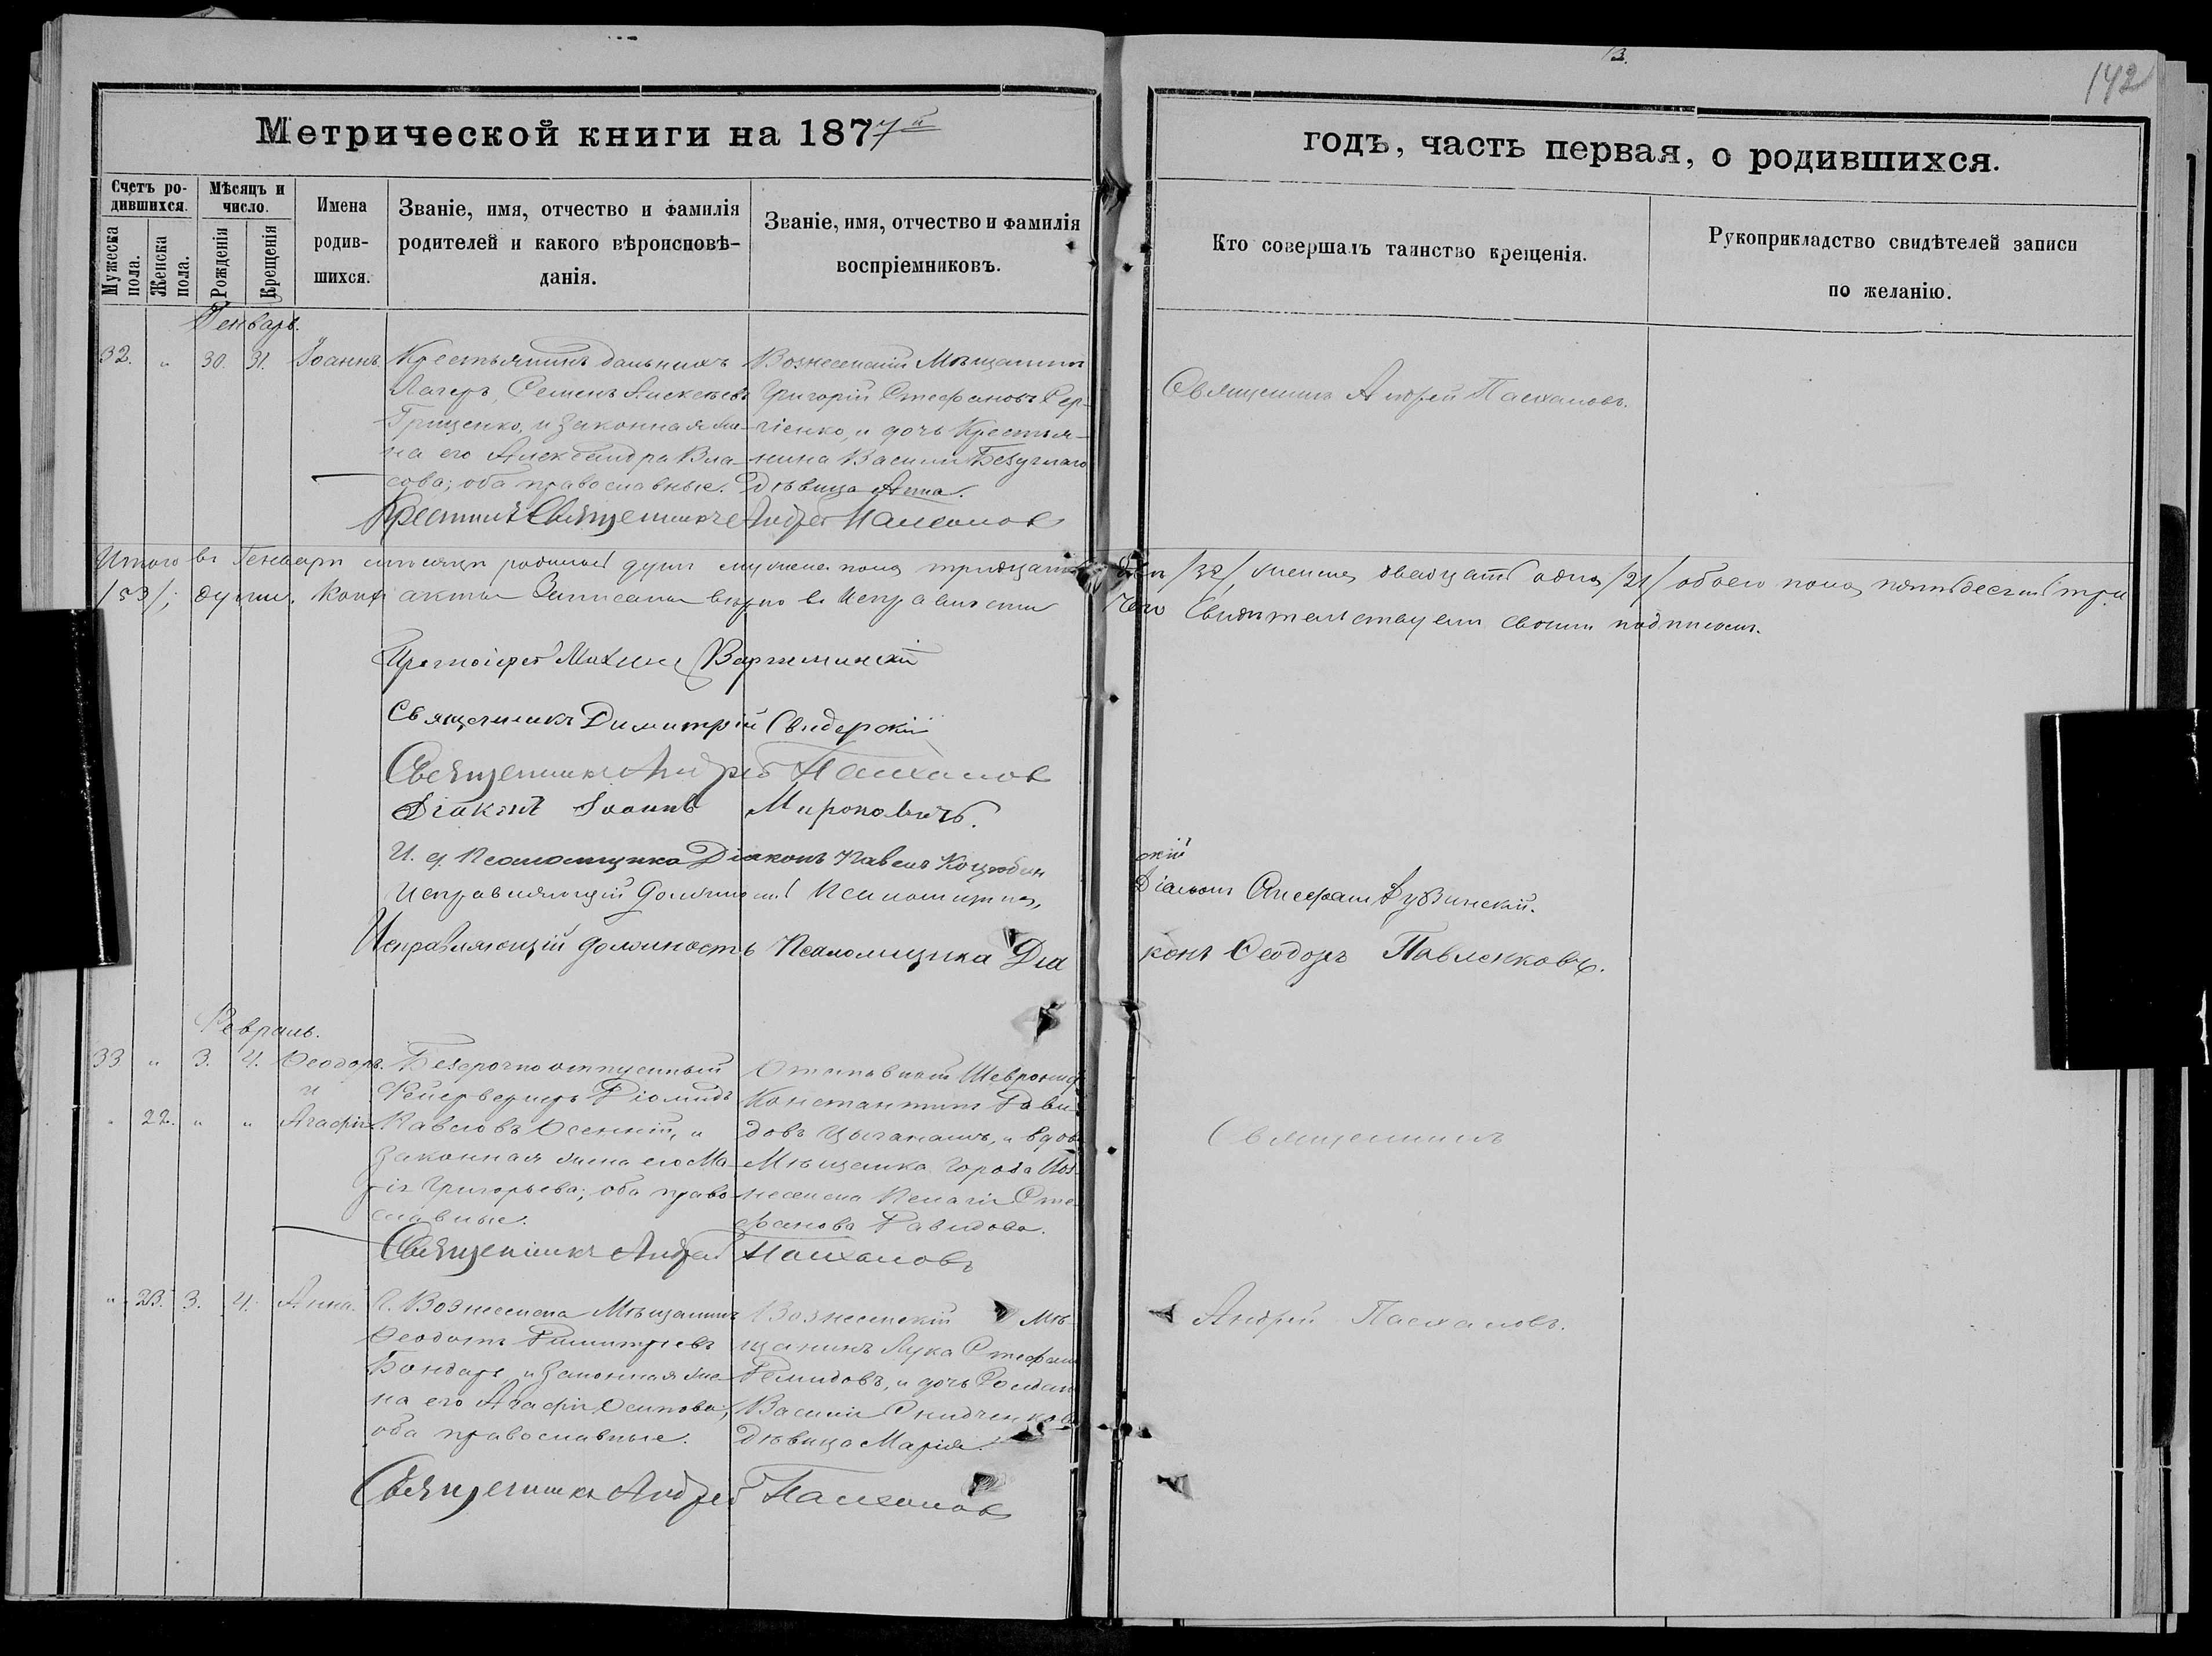 13.
142
Метрической книги на 1877й
годъ, часть первая, о родившихся.
Счетъ родившихся.
Мужеска пола.
Женска пола.
Мѣсяцъ и число.
Рожденія
Крещенія
Имена родив-шихся.
Званіе, имя, отчество и фамилія
родителей и какого вѣроисповѣ-
данія.
Званіе, имя, отчество и фамилія
воспріемниковъ.
Кто совершалъ таинство крещенія.
Рукоприкладство свидѣтелей записи
по желанію.
Генварь.
32. „ 30. 31. Іоаннъ.
Крестьянинъ дальнихъ
Лагерь, Семенъ Алексѣевъ
Грищенко, и законная же-
на его Александра Вла-
сова; оба православные.
Вознесенскій Мѣщанинъ
Григорій Стефановъ Сер-
гіенко, и дочь Крестья-
нина Василія Безуглаго
Дѣвица Анна.
Священникъ Андрей Пасхаловъ.
Крестилъ Священникъ Андрей Пасхаловъ
Итого въ Генварѣ мѣсяцѣ родилось душъ мужеска пола тридцать два /32/, женска двадцать одна /21/ обоего пола пятьдесятъ три
/53/; души. акты записаны вѣрно въ чего свидѣтельствуемъ своимъ подписомъ.
Протоіерей Михаилъ
Священникъ Димитрій Свидерскій
Священникъ Андрей Пасхаловъ
Діаконъ Іоаннъ Мироновичъ.
И. д. Псаломщика Діаконъ Павелъ Коцюбинскій
Исправляющій должность Псаломщика, Діаконъ Стефанъ Дузинскій.
Исправляющій должность Псаломщика Діаконъ Ѳеодоръ Павленковъ.
Февраль.
33 „ 3. 4. Ѳеодоръ.
и
„ 22. „ „ Агафія
Безсрочно отпускный
Фейерверкеръ Діомидъ
Павловъ Осенній, и
законная жена его Ма-
рія Григорьева; оба право-
славные.
Константинъ Дави-
довъ Цыганашъ, и вдова
Мѣщанка города Воз-
несенска Пелагія Сте-
фанова Давидова.
Священникъ
Священникъ Андрей Пасхаловъ
„ 23. 3. 4. Анна.
Г. Вознесенска Мѣщанинъ
Ѳеодотъ Димитріевъ
Бондарь, и законная же-
на его Агафія Осипова;
оба православные.
Вознесенскій Мѣ-
щанинъ Лука Стефан
Демидовъ, и дочь Солдата
Василія
Дѣвица Марія.
Андрей Пасхаловъ.
Священникъ Андрей Пасхаловъ